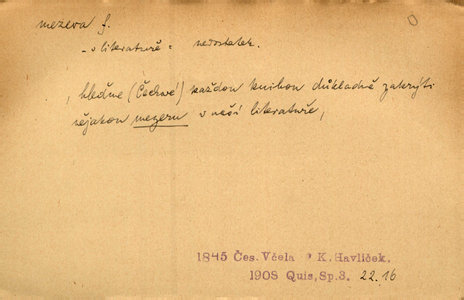 mezera f.
„v literatuře“ = nedostatek.
, hleďme (Čechové) každou knihou důkladně zakrýti
nějakou mezeru v naší literatuře,
1845 Čes. Včela K. Havlíček.
1908 Quis, Sp. 3. 22.16